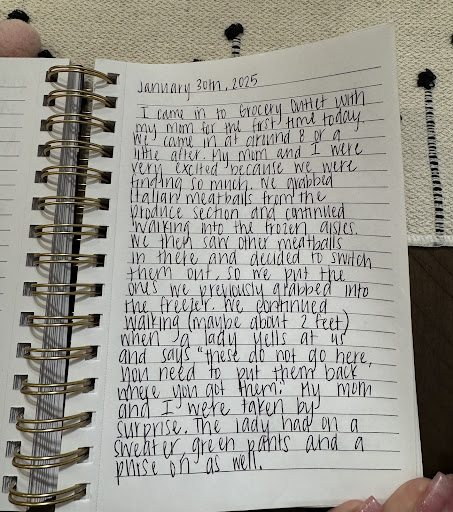 January 30th, 2025
I came in to Grocery Outlet with
my mom for the first time today.
We came in at around 8 or a
little after. My mom and I were
very excited because we were
finding so much. We grabbed
Italian meatballs from the
produce section and continued
walking into the frozen aisles.
We then saw other meatballs
in there and decided to switch
them out, so we put the
ones we previously grabbed into
the freezer. We continued
walking (maybe about 2 feet)
when a lady yells at us
and says "these do not go here,
you need to put them back
where you got them." My mom
and I were taken by
surprise. The lady had on a
sweater green pants and a
purse on as well.